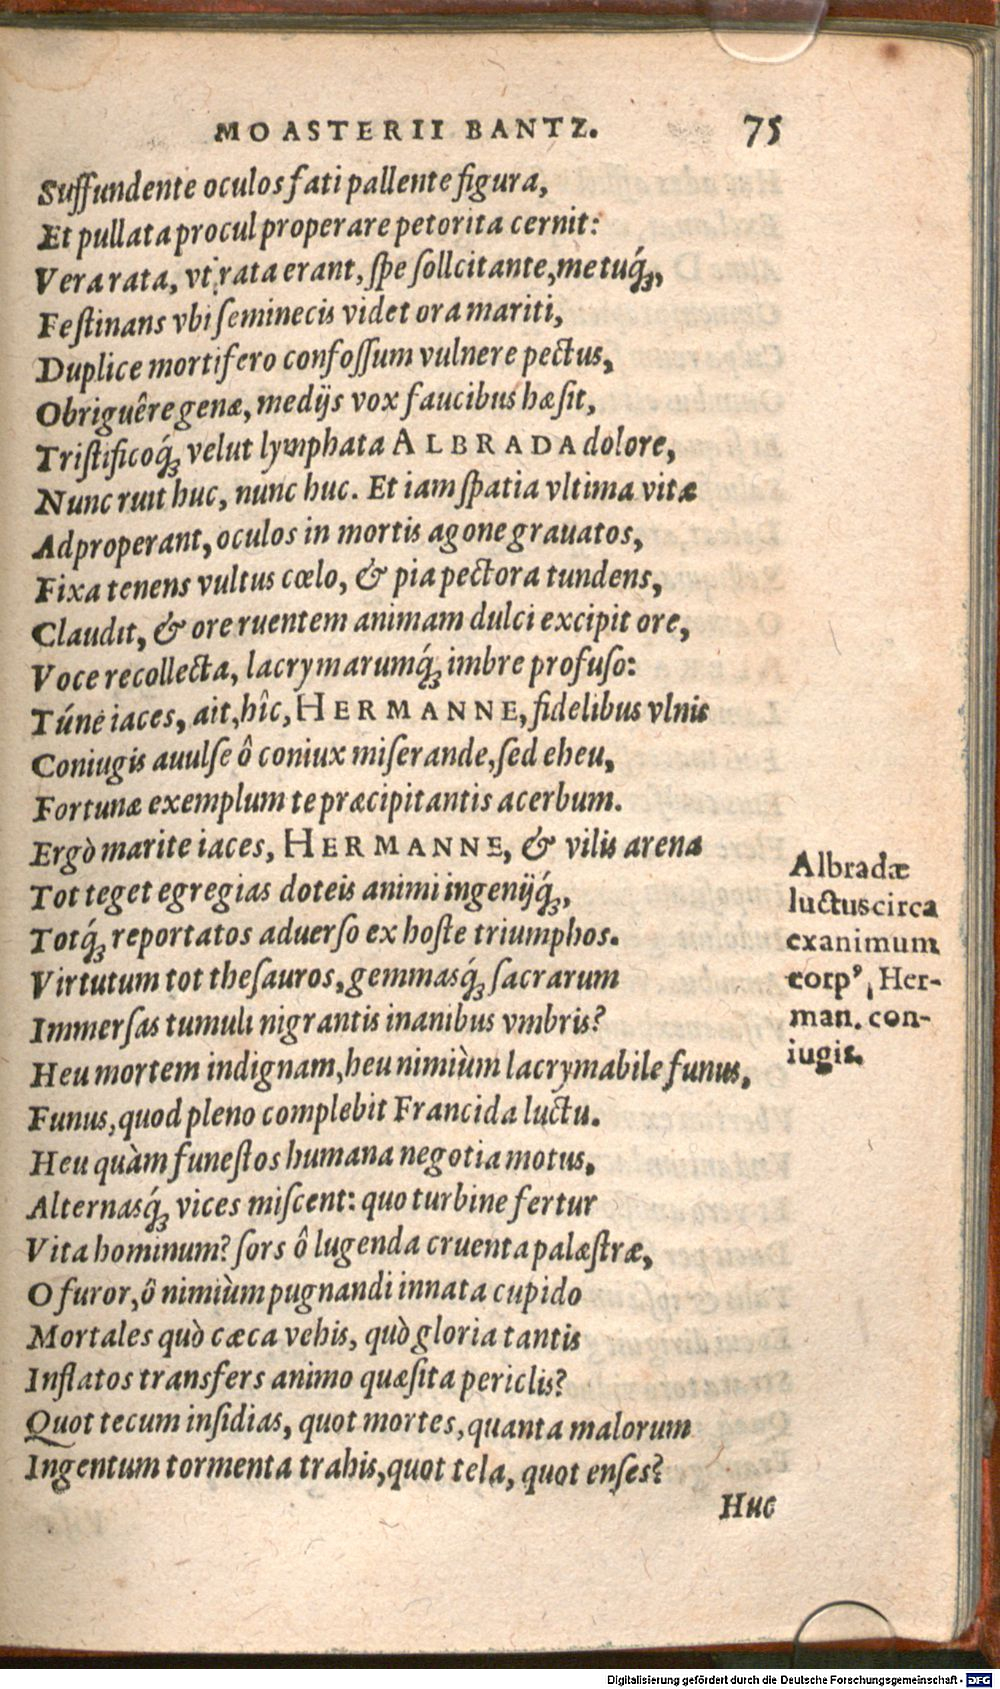 MOASTERII BANTZ. 75
Suffundente oculos fati pallente figura,
Et pullata procul properare petorita cernit:
Vera rata, vt rata erant, ſpe ſollcitante, metuq́ꝫ,
Feſtinans vbi ſeminecis videt ora mariti,
Duplice mortifero confoſſum vulnere pectus,
Obriguêre genæ, medijs vox faucibus hæſit,
Triſtificoq́ꝫ velut lymphata ALBRADA dolore,
Nunc ruit huc, nunc huc. Et iam ſpatia vltima vitæ
Adproperant, oculos in mortis agone grauatos,
Fixa tenens vultus cœlo, & pia pectora tundens,
Claudit, & ore ruentem animam dulci excipit ore,
Voce recollecta, lacrymarumq́ꝫ imbre profuſo:
Túne iaces, ait, hîc, HERMANNE, fidelibus vlnis
Coniugis auulſe ô coniux miſerande, ſed eheu,
Fortunæ exemplum te præcipitantis acerbum.
Ergò marite iaces, HERMANNE, & vilis arena
Tot teget egregias doteis animi ingenijq́ꝫ,
Totq́ꝫ reportatos aduerſo ex hoſte triumphos.
Virtutum tot theſauros, gemmasq́ꝫ ſacrarum
Immerſas tumuli nigrantis inanibus vmbris?
Heu mortem indignam, heu nimiùm lacrymabile funus,
Funus, quod pleno complebit Francida luctu.
Heu quàm funeſtos humana negotia motus,
Alternasq́ꝫ vices miſcent: quo turbine fertur
Vita hominum? ſors ô lugenda cruenta palæſtræ,
O furor, ô nimiùm pugnandi innata cupido
Mortales quò cæca vehis, quò gloria tantis
Inflatos transfers animo quæſita periclis?
Quot tecum inſidias, quot mortes, quanta malorum
Ingentum tormenta trahis, quot tela, quot enſes?
Huc
Albradæ
luctus circa
exanimum
corpꝰ, Her-
man. con-
iugis.
Digitalisierung gefördert durch die Deutsche Forschungsgemeinschaft - DFG